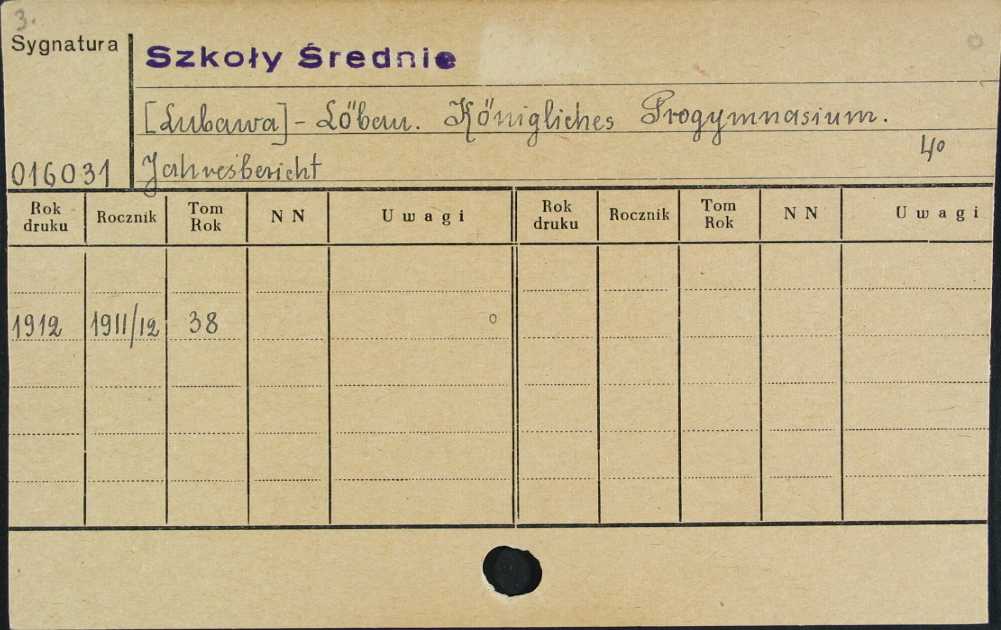 3.
Sygnatura
Szkoły Średnie
[Lubawa] - Löbau. Königliches Progymnasium.
4°
016031 Jahresbericht
Rok druku Rocznik Tom Rok N N Uwagi Rok druku Rocznik Tom Rok N N Uwagi
1912 1911/12 38 o